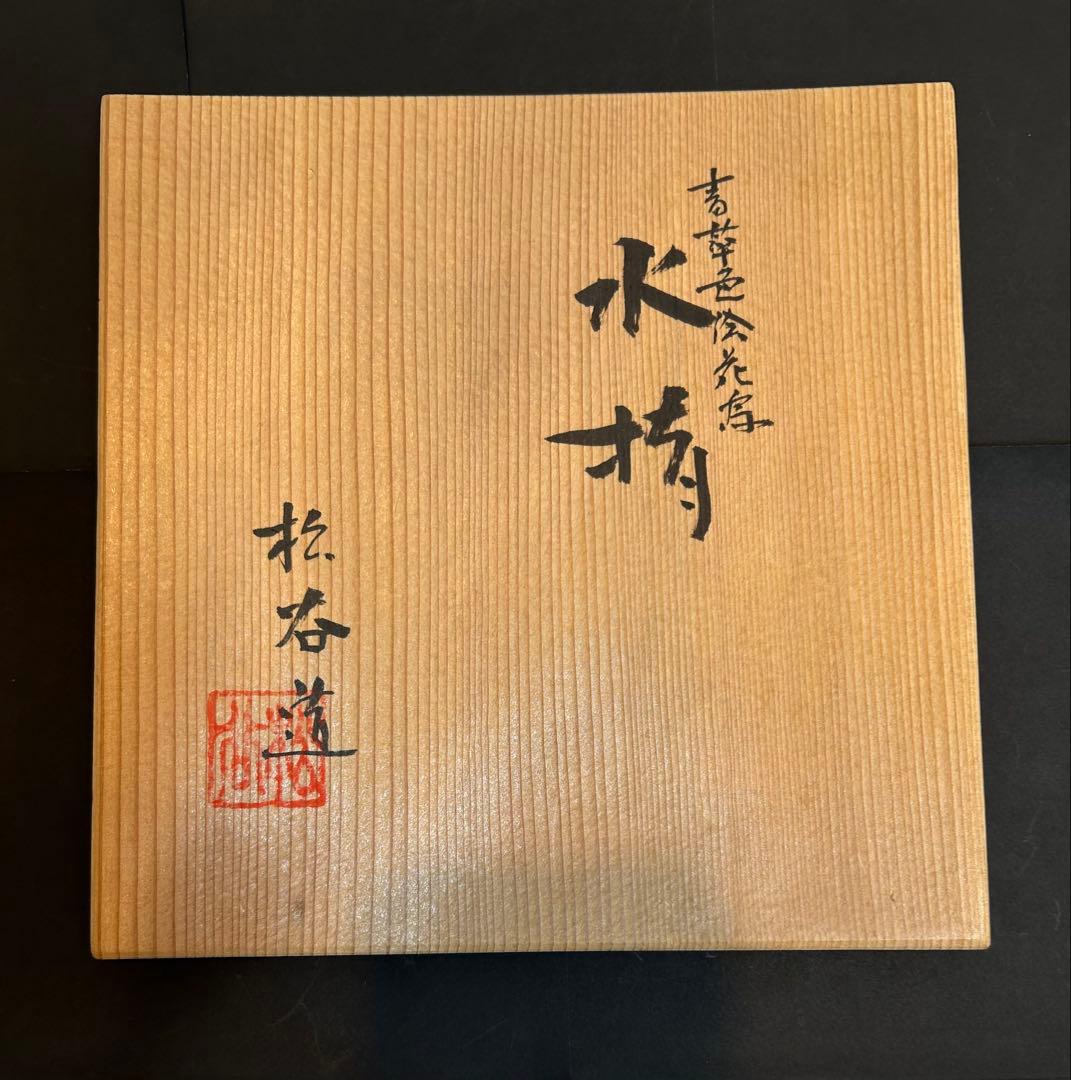 青華色絵花窓
水指
松谷道